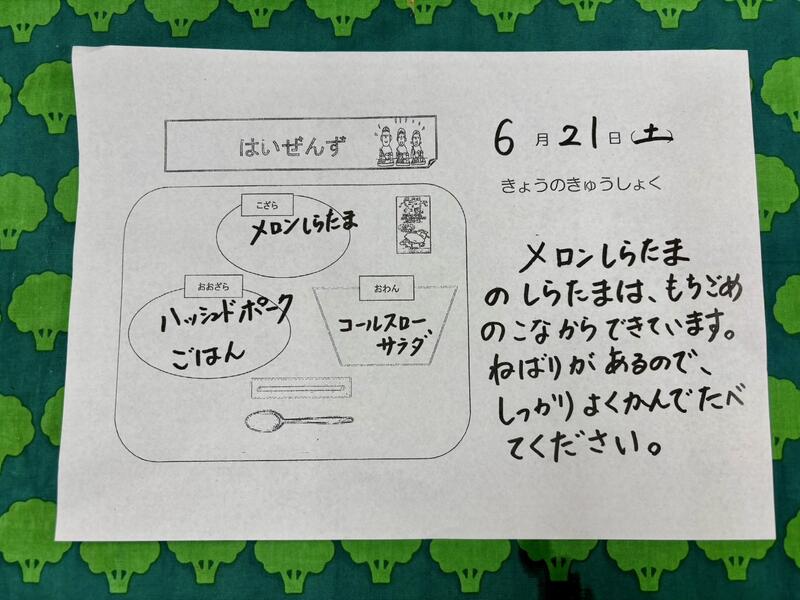 はいぜんず
6月21日(土)
きょうのきゅうしょく
こざら
メロンしらたま
おおざら
ハッシュドポーク
ごはん
おわん
コールスロー
サラダ
メロンしらたま
のしらたまは、もちごめ
のこなからできています。
ねばりがあるので、
しっかりよくかんでたべ
てください。